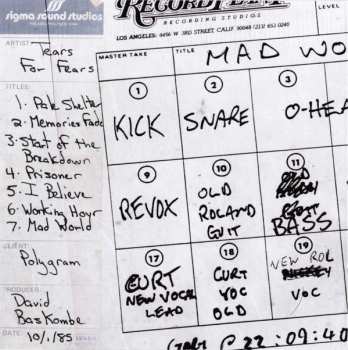 sigma sound studios
RECORD PLANT
RECORDING STUDIOS
LOS ANGELES: 8456 W. 3RD STREET, CALIF. 90048 (213) 653-0240
ARTIST
Tears
For Fears
TITLES
1. Pale Shelter
2. Memories Fade
3. Start of the
Breakdown
4. Prisoner
5. I Believe
6. Working Hour
7. Mad World
CLIENT
Polygram
PRODUCER
David
Baskombe
DATE 10/1/85
MASTER TAKE
TITLE MAD WO
LEVEL
1
KICK
2
SNARE
3
O-HEA
9
REVOX
10
OLD
ROLAND
GUIT
11
BASS
17
CURT
NEW VOCAL
LEAD
18
CURT
VOC
OLD
19
NEW ROL
VOC
22:09:40